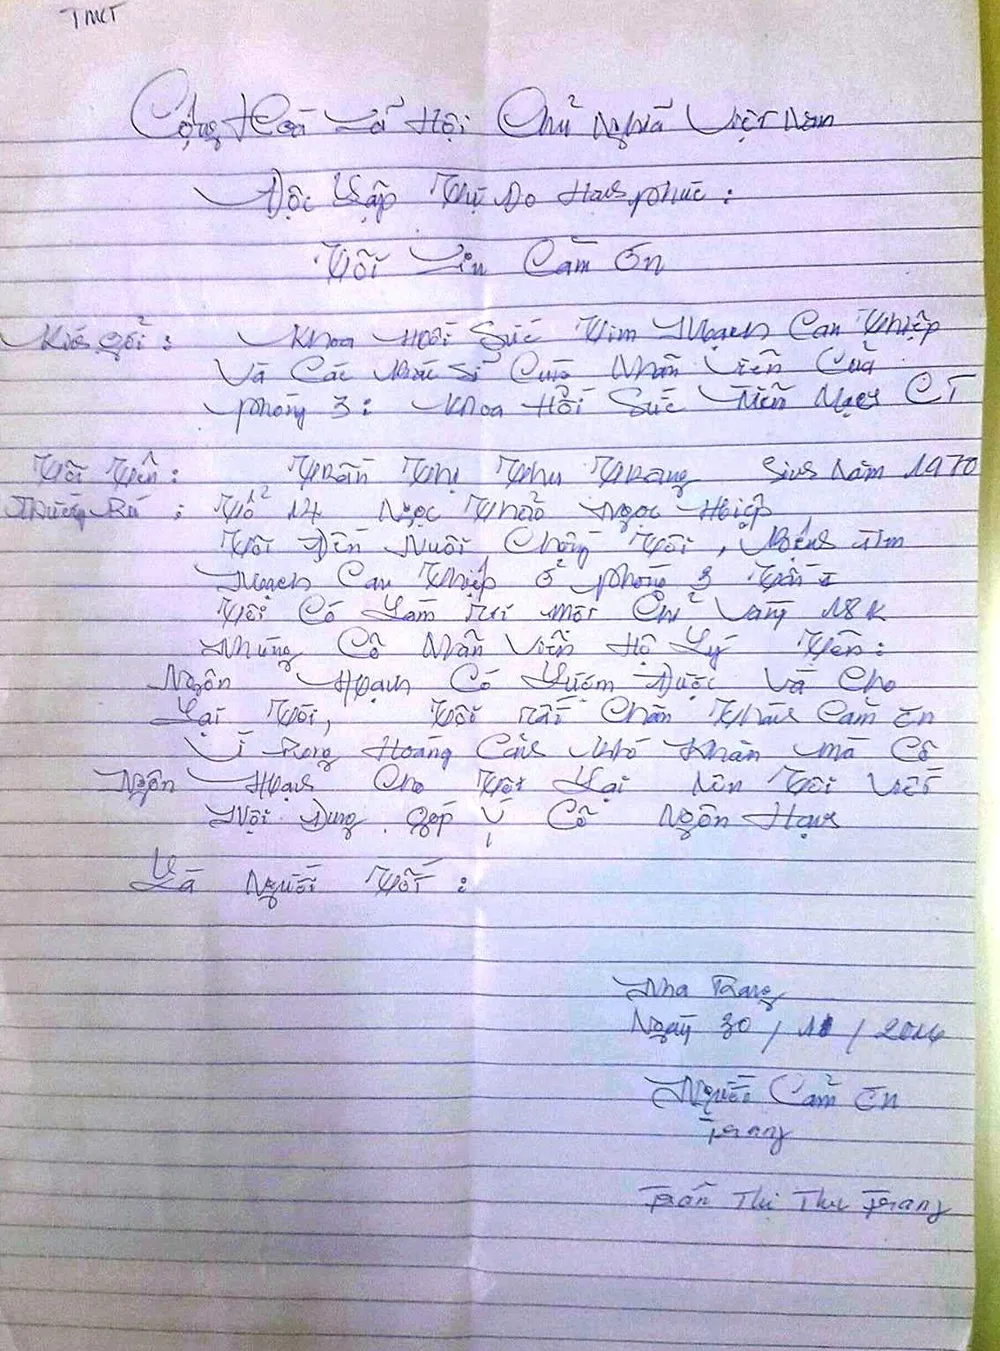 TMCT
Cộng Hoà Xã Hội Chủ Nghĩa Việt Nam
Độc Lập Tự Do Hạnh phúc :
Lời Cảm Ơn
Kính gởi : Khoa Hồi Sức Tim Mạch Can Thiệp
Và Các Bác Sĩ Cùng Nhân Viên Của
phòng 3 : Khoa Hồi Sức Mạch CT
Tôi Tên : Trần Thị Thu Trang Sinh Năm 1970
Thường Trú : Tổ 14 Ngọc Thảo Ngọc Hiệp
Tôi Đến Nuôi Chồng Tôi , Bệnh Tim
Mạch Can Thiệp Ở phòng 3
Tôi Có Làm Rớt một Chỉ Vàng 18K
Nhưng Cô Nhân Viên Hộ Lý Tên :
Ngôn Hạnh Có Lượm Được Và Cho
Lại Tôi, Tôi rất Chân Thành Cảm Ơn
Vì Trong Hoàng Cảnh Khó Khăn mà Cô
Ngôn Hạnh Cho Tôi Lại Nên Tôi Viết
Nội Dung góp Ý Cô Ngôn Hạnh
Là Người Tốt :
Nha Trang
Ngày 30 / / 2016
Người Cảm Ơn
Trang
Trần Thị Thu Trang